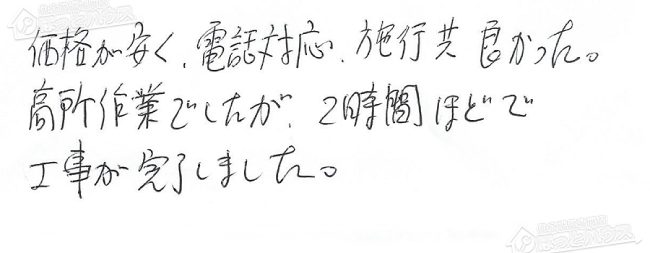 価格が安く、電話対応、施行共良かった。
高所作業でしたが、2時間ほどで
工事が完了しました。